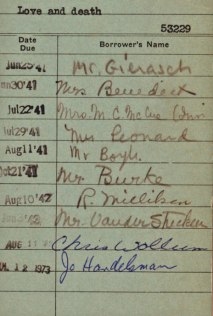 Love and death
53229
Date Due
Borrower's Name
Jun25'41 Mr. Gierasch
Jun30'41 Mrs Benedock
Jul22'41 Mrs. M. C.
Jul29'41 Mrs Leonard
Aug11'41 Mr Boyle.
Oct21'41 Mr. Burke
Aug10'42 R. Milliken
'42 Mr. Vander Stucken
AUG 11 Chris Wollum
12 1973 Jo Handelsman